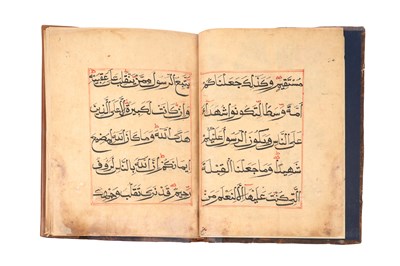 مستقيم وكذلك جعلناكم
أمة وسطا لتكونوا شهداء
على الناس ويكون الرسول عليكم
شهيدا وما جعلنا القبلة
التي كنت عليها إلا لنعلم من
يتبع الرسول ممن ينقلب على عقبيه
وإن كانت لكبيرة إلا على الذين
هدى الله وما كان الله ليضيع
إيمانكم إن الله بالناس لرؤف
رحيم قد نرى تقلب وجهك